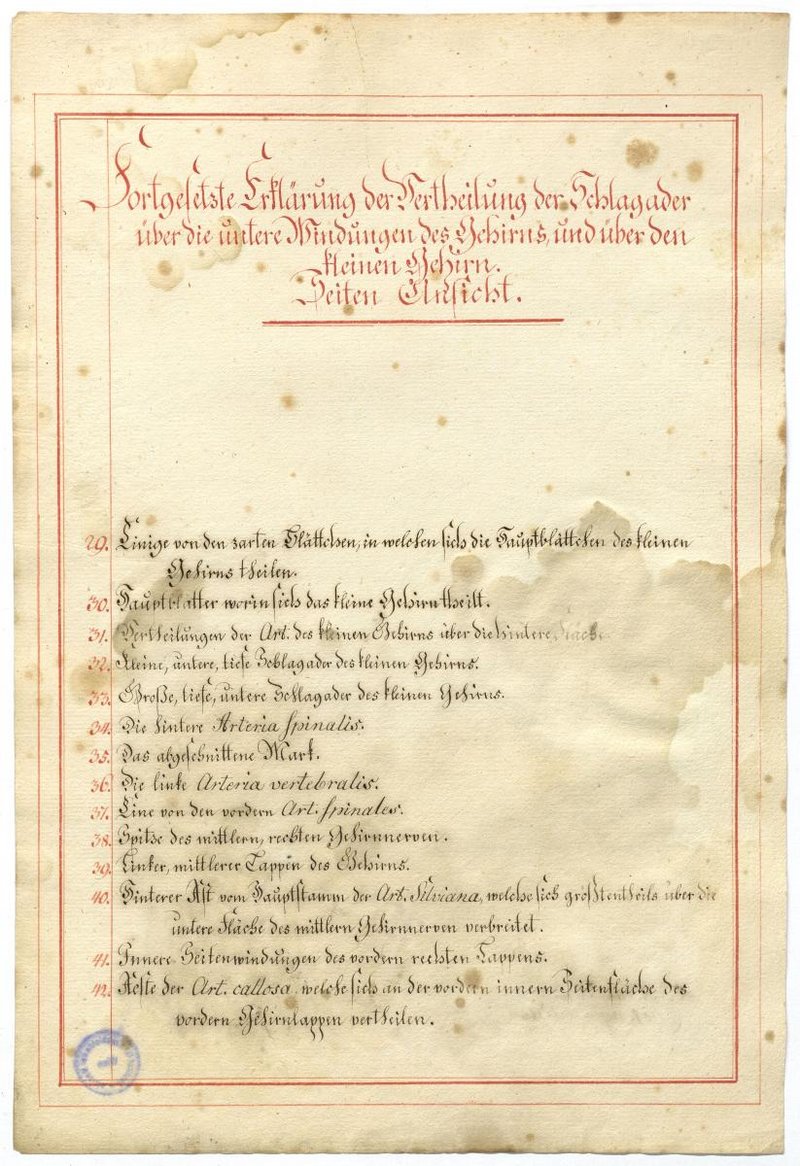 Fortgesetzte Erklärung der Vertheilung der Schlagader
über die untere Windungen des Gehirns, und über den
kleinen Gehirn.
Seiten Ansicht.
29. Einige von den zarten Blättchen, in welchen sich die Hauptblättchen des kleinen
Gehirns theilen.
30. Hauptblätter worin sich das kleine Gehirn theilt.
31. Vertheilungen der Art. des kleinen Gehirns über die hintere Fläche
32. Kleine, untere, tiefe Schlagader des kleinen Gehirns.
33. Große, tiefe, untere Schlagader des kleinen Gehirns.
34. Die hintere Arteria spinalis.
35. Das abgeschnittene Mark.
36. Die linke Arteria vertebralis.
37. Eine von den vordern Art. spinales.
38. Spitze des mittlern, rechten Gehirnnerven.
39. Linker, mittlerer Lappen des Gehirns.
40. Hinterer Ast vom Hauptstamm der Art. Silviana, welche sich großtentheils über die
untere Fläche des mittlern Gehirnnerven verbreitet.
41. Innere Seitenwindungen des vordern rechten Lappens.
42. Aeste der Art. callosa, welche sich an der vordern innern Seitenfläche des
vordern Gehirnlappen vertheilen.